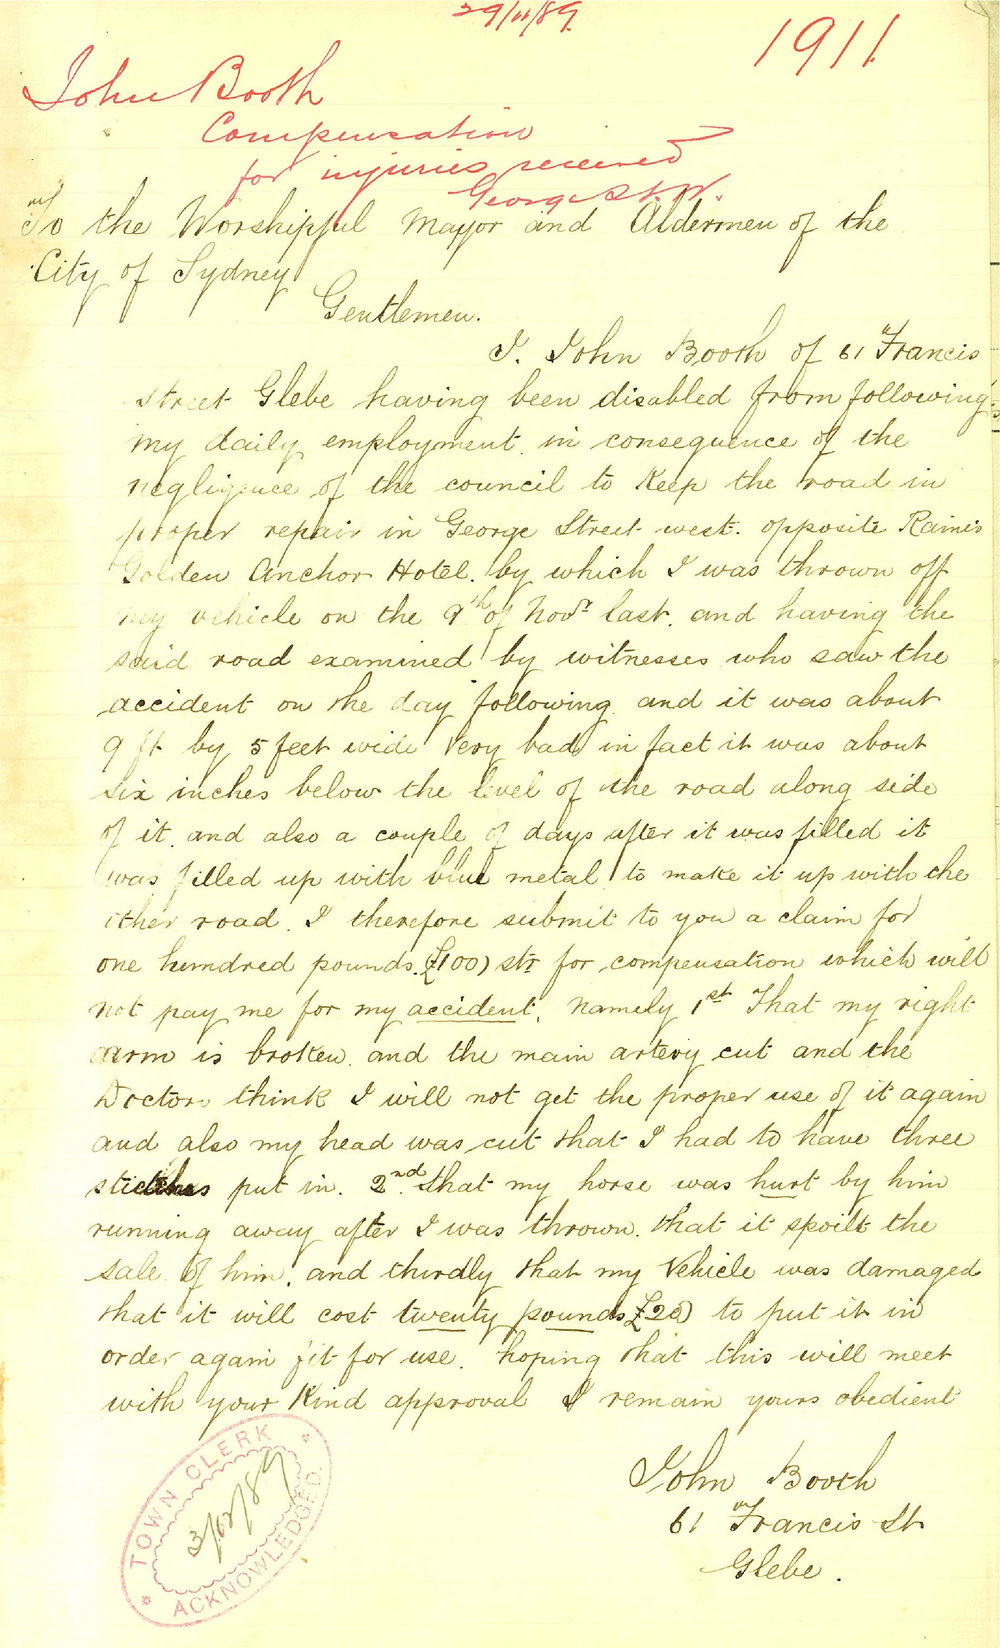 29/11/89.
1911.
John Booth
Compensation
for injuries received
George St. W.
To the Worshipful Mayor and Aldermen of the
City of Sydney
Gentlemen.
I. John Booth of 61 Francis
street Glebe having been disabled from following
my daily employment. in consequence of the
negligence of the council to keep the road in
proper repair in George Street west. opposite Raine's
Golden Anchor Hotel. by which I was thrown off
my vehicle on the 9th of Novr last. and having the
said road examined by witnesses who saw the
accident on the day following. and it was about
9 ft by 5 feet wide Very bad in fact it was about
six inches below the level of the road along side
of it. and also a couple of days after it was filled it
was filled up with blue metal to make it up with the
other road. I therefore submit to you a claim for
one hundred pounds. (£100) str for compensation which will
not pay me for my accident. namely 1st That my right
arm is broken. and the main artery cut and the
Doctors think I will not get the proper use of it again
and also my head was cut that I had to have three
stitches put in. 2nd. that my horse was hurt by him
running away after I was thrown. that it spoilt the
sale of him. and thirdly that my Vehicle was damaged
that it will cost twenty pounds (£20) to put it in
order again fit for use. hoping that this will meet
with your Kind approval I remain yours obedient
John Booth
61 Francis St
Glebe.
TOWN CLERK
3/12/89
ACKNOWLEDGED.